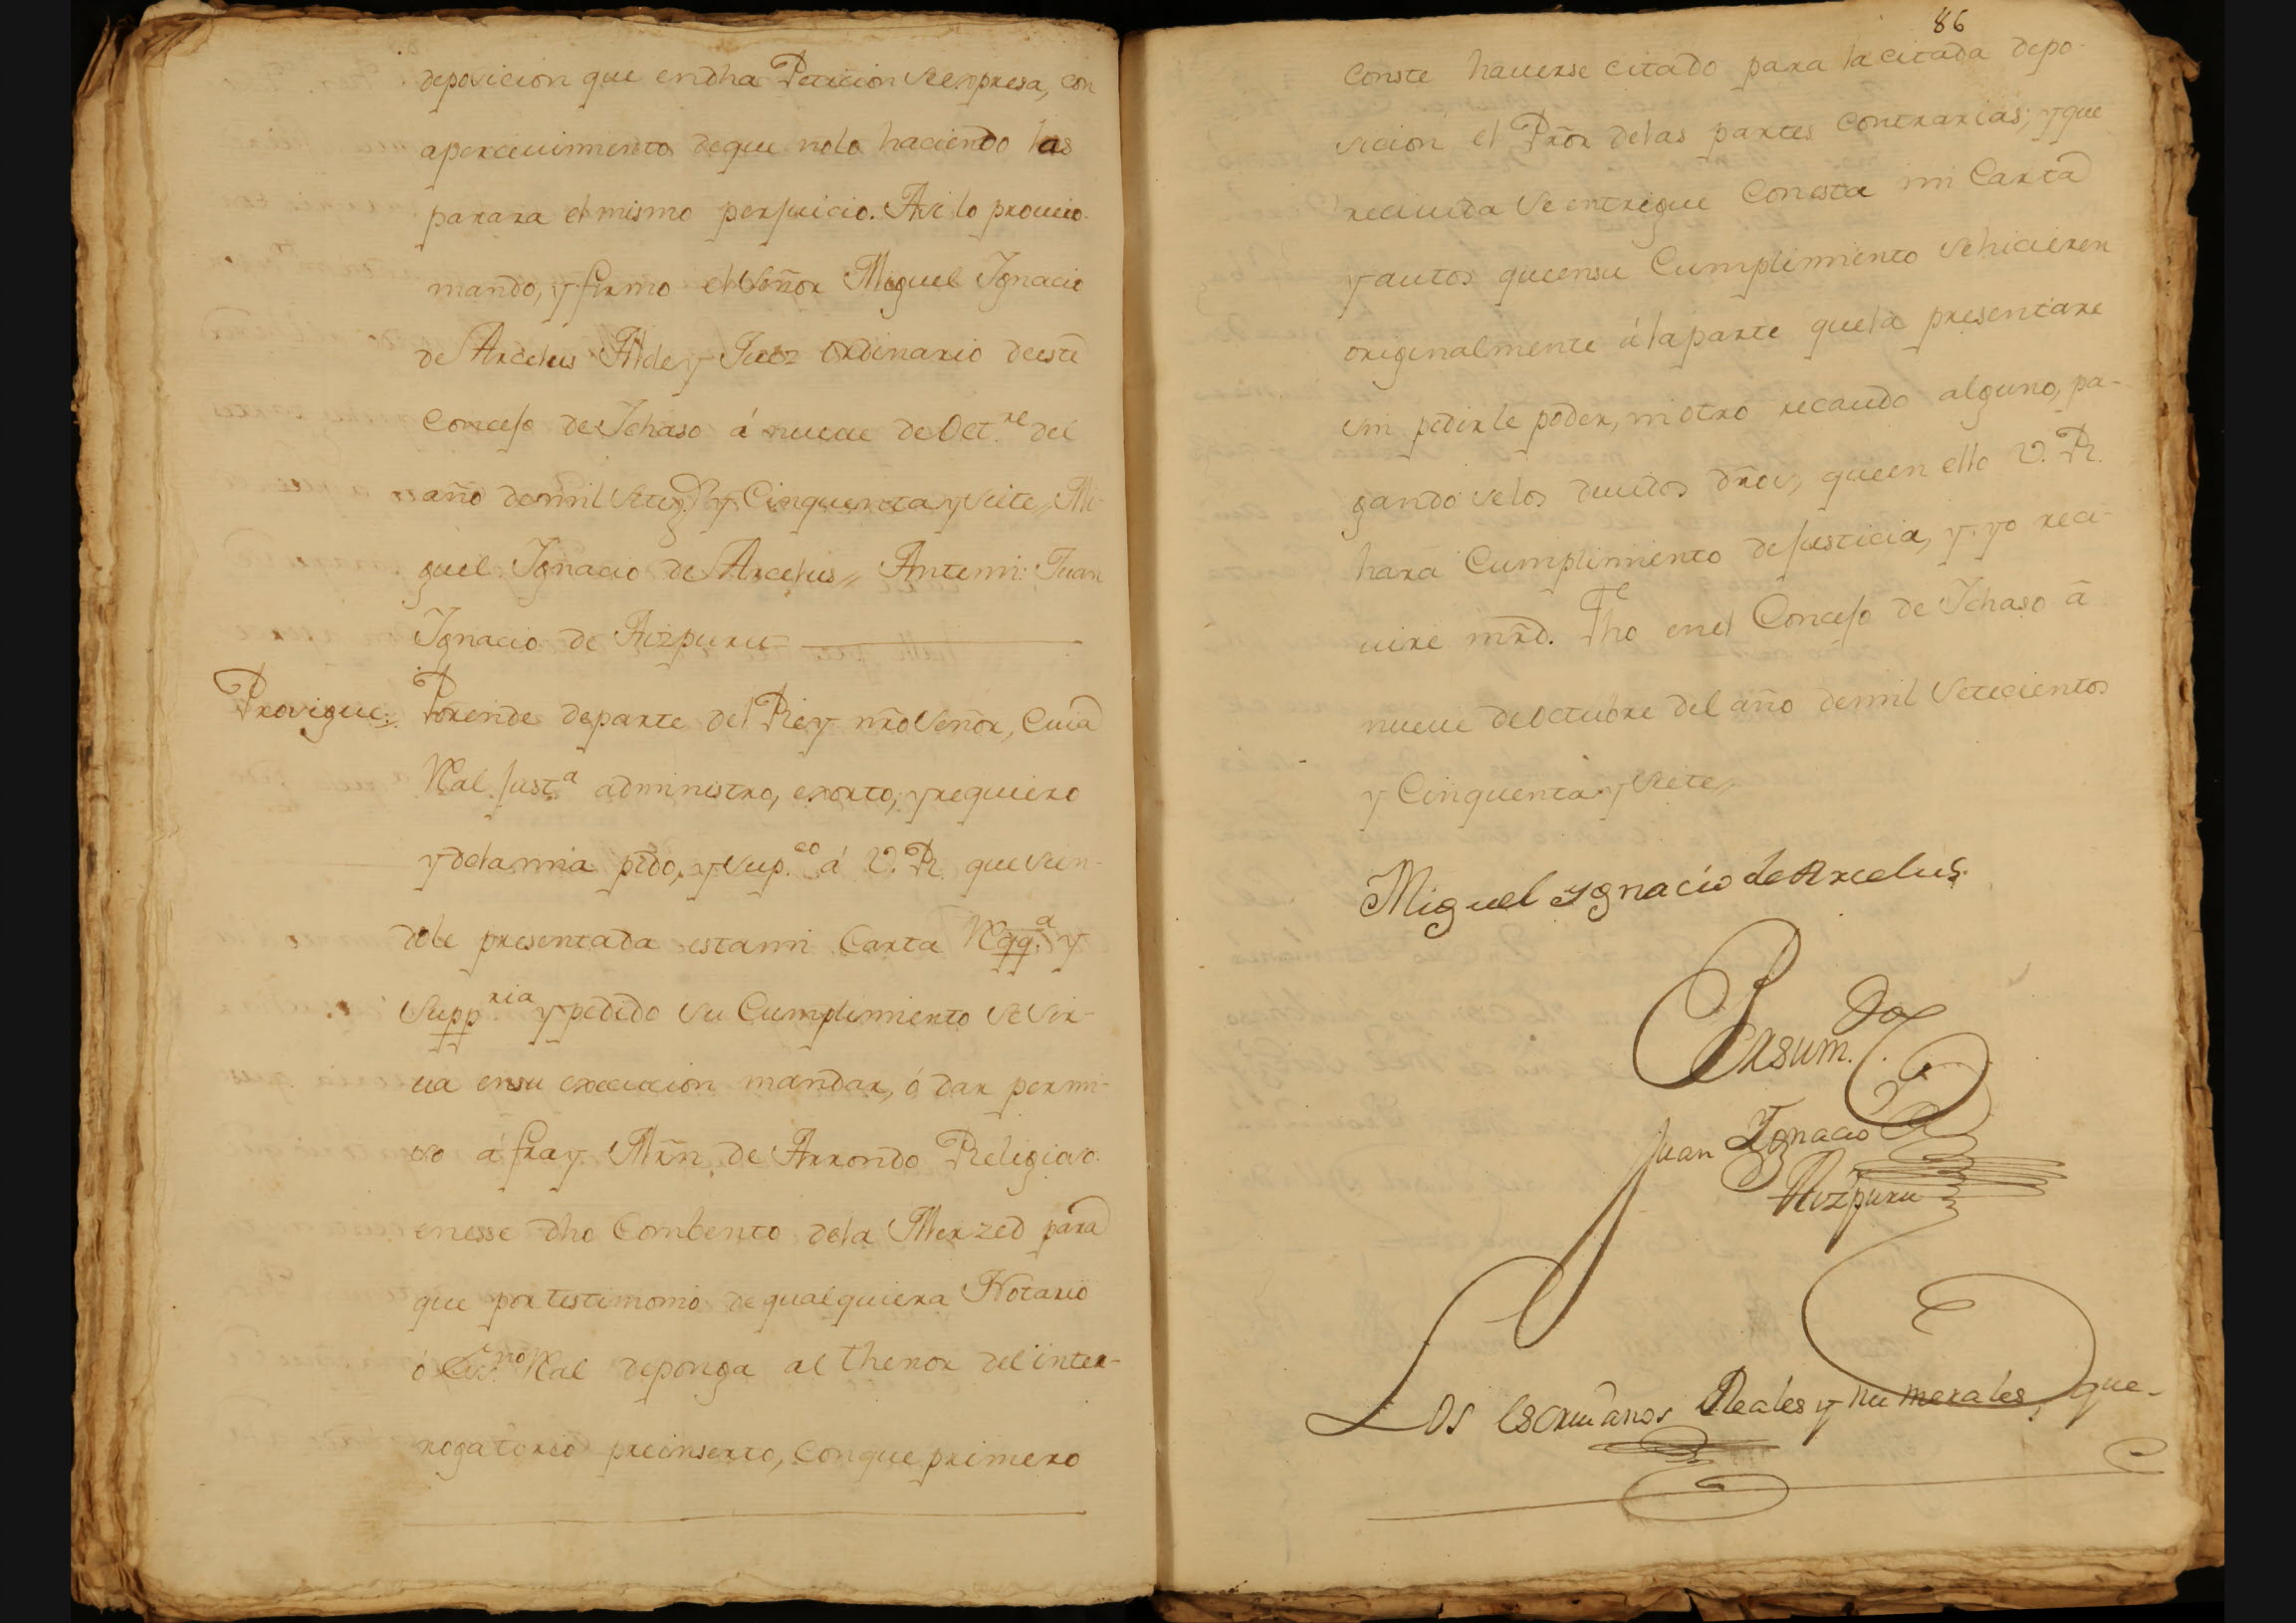 deposicion que en dha Peticion se expresa, con
apercivimiento de que nolo haciendo las
parara el mismo perjuicio. Asi lo proveio
mando, y firmo el Señor Miguel Ignacio
de Arcelus Alde y Juez ordinario deeste
Concejo de Ichaso á nueve de Oct.re del
año de mil Seteçs y Cinquenta y siete,, Mi-
guel Ignacio de Arcelus,, Antemi: Juan
Ignacio de Aizpuru
Prosigue:. Porende departe del Rey nrõ Señor, Cuia
Ral. Just.a administro, exorto, y requiero
y dela mia pido, y sup.co á V. R. que sien-
dole presentada esta mi Carta Rqq.a y
Supp.ria y pedido su Cumplimiento se sir-
va ensu execucion mandar, ó dar permi-
so á fray Mrñ de Arrondo Religioso
enesse dho Combento dela Merzed para
que por testimonio de qualquiera Notario
ó Ess.no Ral deponga al thenor del inter-
rogatorio preinserto, conque primero
86
Conste haverse citado para la citada depo-
sicion el Prõr delas partes contrarias; y que
recivida se entregue Conesta mi Carta
y autos queensu Cumplimiento se hicieren
originalmente á la parte quela presentare
sin pedirle poder, ni otro recaudo alguno, pa-
gandoselos devidos drõs, queen ello V. R.
hara Cumplimiento de Justicia, y yo reci-
vire mrd. Fho enel Concejo de Ichaso á
nueve de Octubre del año demil Setecientos
y Cinquenta y siete,,
Miguel Ygnacio de Arcelus
Juan Ignacio
Aizpuru
Los Escrivanos Reales y numerales, que-